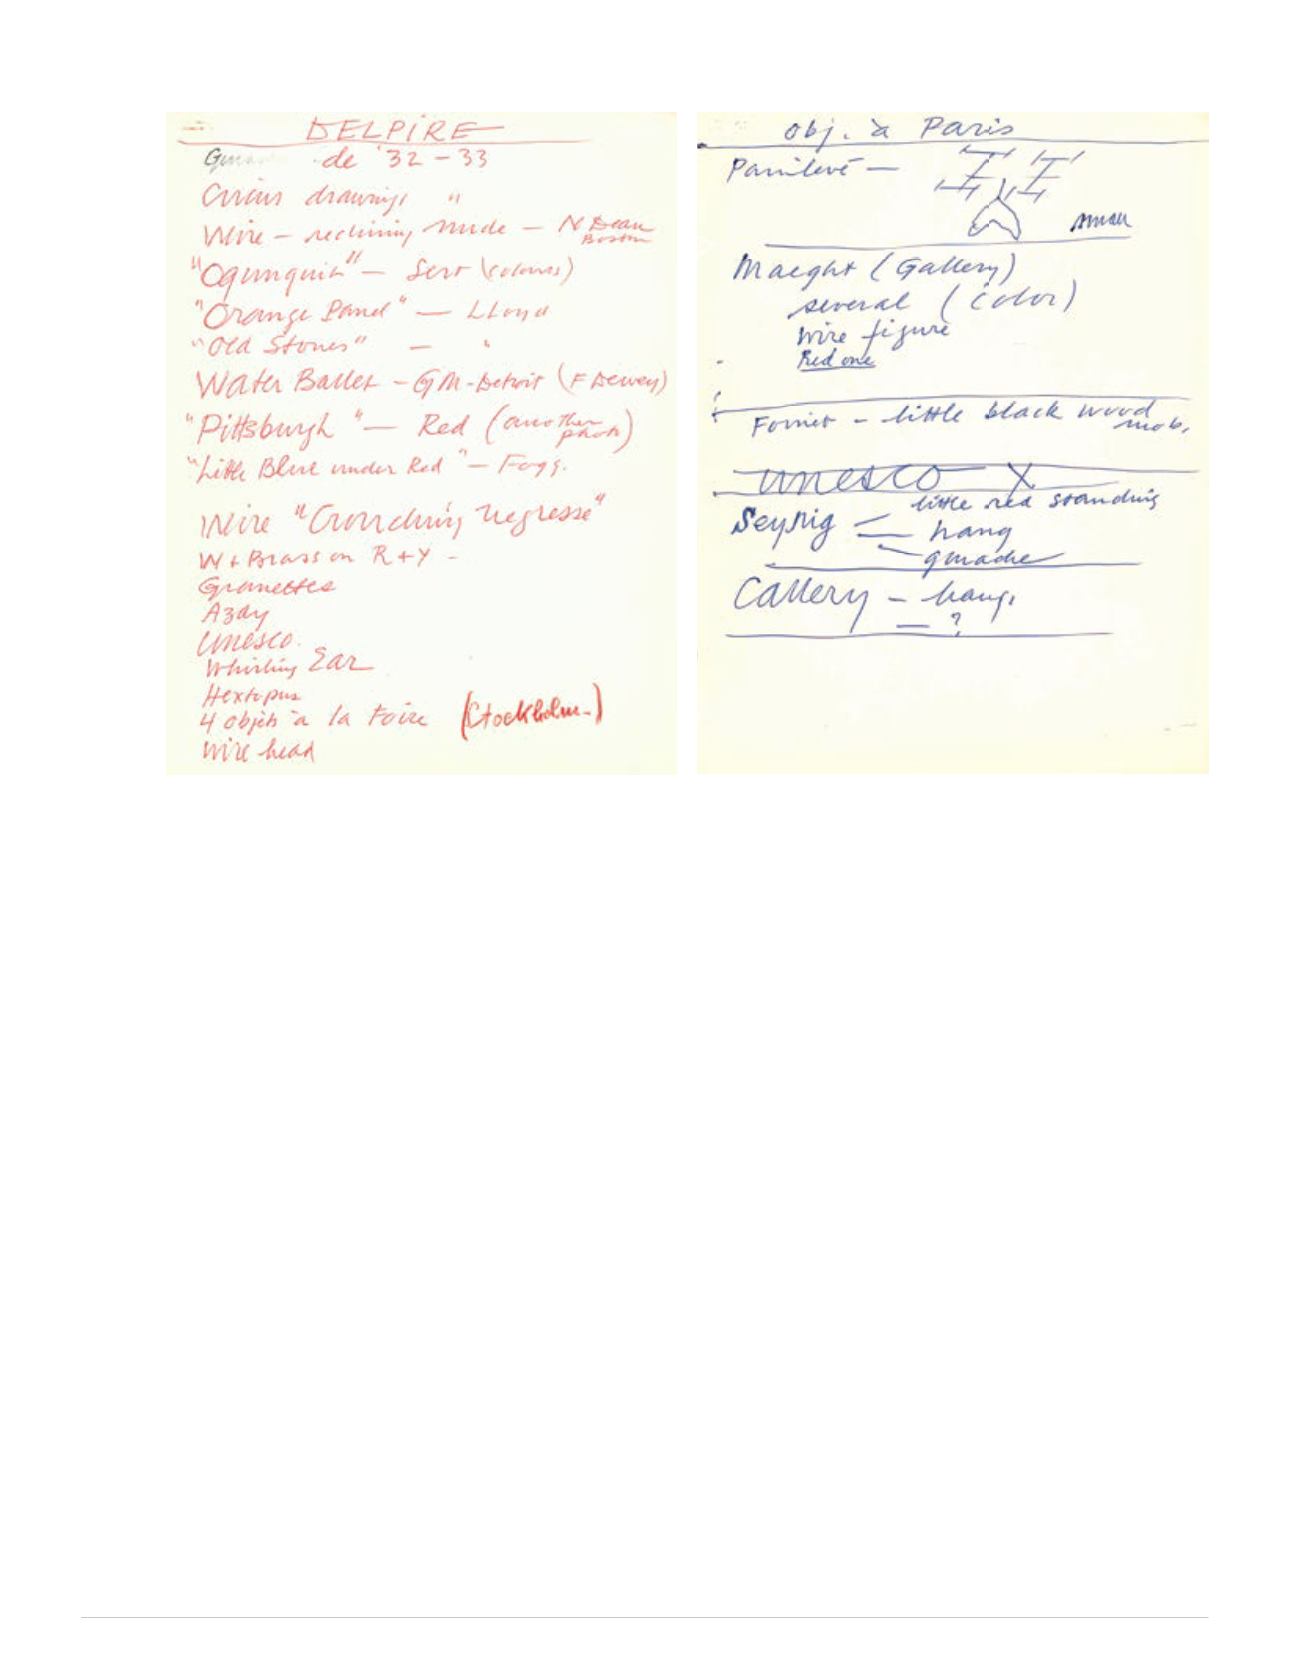 DELPIRE
de '32 - 33
Circus drawings "
Wire - reclining nude - N Dean
Boston
"Ogunquit" - Sert (colours)
"Orange Panel" - Lloyd
"Old Stones" - "
Water Ballet - GM-Detroit (F Dewey)
"Pittsburgh" - Red (another
photo)
"Little Blue under Red" - Fogg.
Wire "Crouching Negresse"
W + Brass on R + Y -
Granettes
Azay
Unesco.
Whirling Ear
Hextopus
4 objets à la Foire (Stockholm-)
Wire head
obj. à Paris
Painlevé -
small
Maeght (Gallery)
several (color)
wire figure
Red one
- little black wood
mob.
unesco X
Seyrig - little red standing
hang
gouache
Callery - hang.
- ?